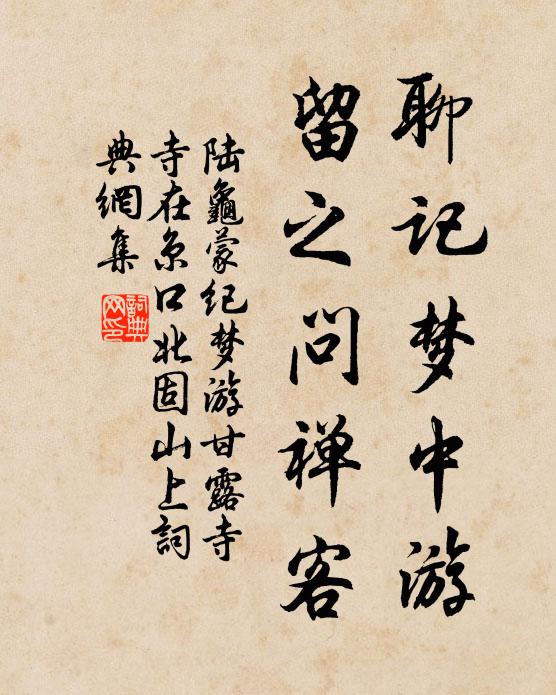 聊记梦中游
留之问禅客
陆龜蒙纪梦游甘露寺
寺在京口北固山上詞
典網集
詞典
网印